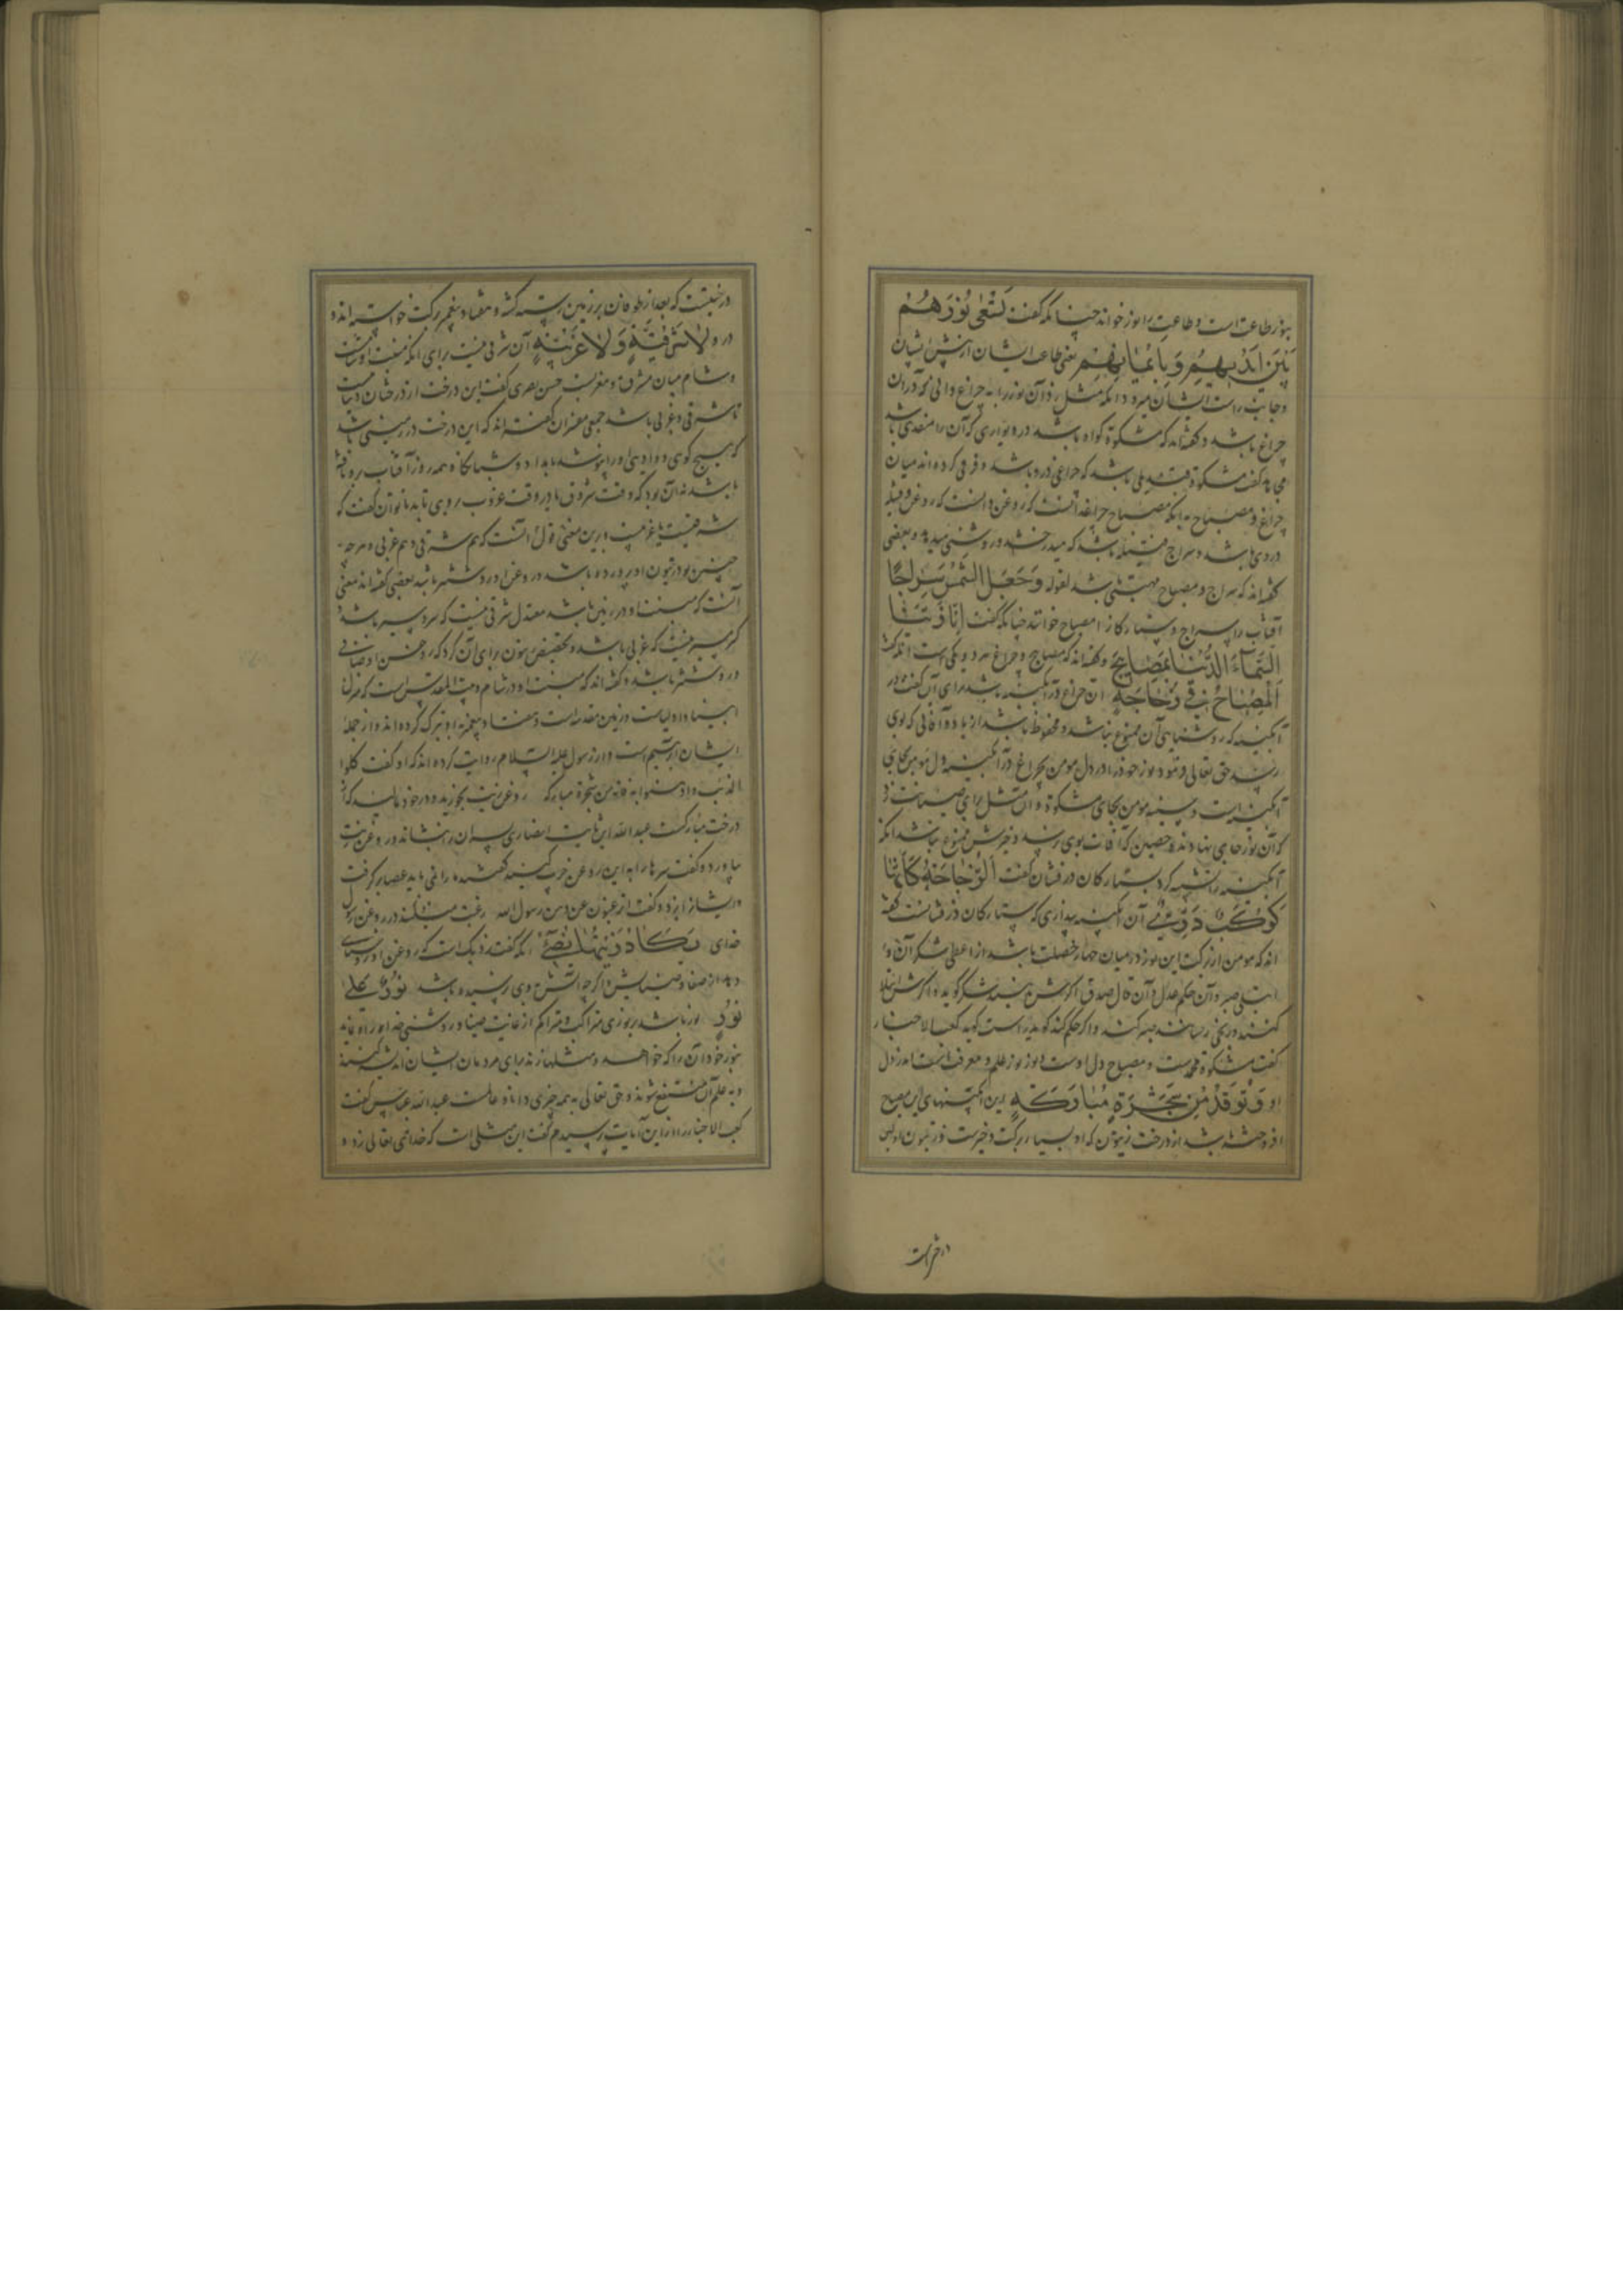 بنور طاعت است و طاعت را نور خواند چنانکه گفت یَسْعٰی نُورُهُمْ
بَیْنَ اَیْدِیهِمْ وَ بِاَیْمَانِهِمْ یعنی طاعت ایشان از پیش ایشان
و جانب راست ایشان میرود آنکه مثل زد آن نور را به چراغ دانی که در آن
چراغ باشد و گفته‌اند که مشکوة کواه باشد در دیواری که آن را منفذی باشد
مجاهد گفت مشکوة قندیلی باشد که چراغ در و باشد و فرقی کرده‌اند میان
چراغ و مصباح به آنکه مصباح چراغدانست که روغن دانست که روغن و فتیله
در وی باشد و سراج فتیله باشد که میدرخشد و روشنی میدهد و بعضی
گفته‌اند که سراج و مصباح مهتر باشد لقوله وَ جَعَلَ الشَّمْسَ سِرَاجًا
آفتاب را سراج و ستارگان را مصباح خواند چنانکه گفت اِنَّا زَیَّنَّا
السَّمَآءَ الدُّنْیَا بِمَصَابِیحَ و گفته‌اند که مصباح و چراغ هر دو یکی است آنکه گفت
اَلْمِصْبَاحُ فِی زُجَاجَةٍ آن چراغ در آبگینه باشد برای آن گفت در
آبگینه که روشنایی آن ممنوع نباشد و محفوظ باشد از باد و آفاتی که بوی
رسد حق تعالی فرمود نور خود را در دل مومن بچراغ در آبگینه دل مومن بجای
آبگینه است و سینه مومن بجای مشکوة و این مثل برای صیانت زد
که آن نور جایی نهادند حصین که آفات بوی نرسد و خیرش ممنوع نباشد آنکه
آبگینه را تشبیه کرد بستارگان درفشان گفت اَلزُّجَاجَةُ کَاَنَّهَا
کَوْکَبٌ دُرِّیٌّ آن آبگینه پنداری که ستارگان درفشانست گفته
اند که مومن از برکت این نور در میان چهار خصلت باشد از اعطی شکر آن و
ابتلی صبر و آن حکم عدل و آن قال صدق اگرش بدهند شکر گوید و اگرش ابتلا
کنند و رنجی رسانند صبر کند و اگر حکم کند گوید راست گوید کعب الاحبار
گفت مشکوة محمد است و مصباح دل اوست و نور نور علم و معرفت است در دل
او وَ تُوقَدُ مِنْ شَجَرَةٍ مُبَارَکَةٍ این آبگینهای این مصباح
افروخته باشد از درخت زیتون که او بسیار برکت و خیرست
درختیست که بعد از طوفان بر زمین رسته گشت و هفتاد پیغمبر برکت خواسته‌اند
درو لَا شَرْقِیَّةٍ وَ لَا غَرْبِیَّةٍ آن شرقی نیست برای آنکه منبت او شامست
و شام میان مشرق و مغربست حسن بصری گفت این درخت از درختان دنیا نیست
تا شرقی و غربی باشد جمعی مفسران گفته‌اند که این درخت در زمینی باشد
که هیچ کوهی و وادیی او را نپوشد بامداد و شبانگاه و همه روز آفتاب برو تافته
باشد نه آن بود که وقت شروق یا در وقت غروب بروی تابد تا توان گفت که
شرقیست یا غربیست و برین معنی قول آنست که هم شرقی و هم غربی و هر چه
چنین بود زیتون او پرورده باشد و روغن او روشنتر باشد بعضی گفته‌اند معنی
آنست که منبت او در زمین باشد معتدل شرقی نیست که سرد سیر باشد
گرم سیر نیست که غربی باشد و تخصیص زیتون برای آن کرد که روغن او صافی
و روشنتر باشد و گفته‌اند که منبت او در شام و بیت المقدس است که منزل
انبیا و اولیاست و زمین مقدسه است و هفتاد پیغمبر به او تبرک کرده‌اند و از جمله
ایشان ابرهیم است و از رسول علیه السلام روایت کرده‌اند که او گفت کلوا
الزیت و ادهنوا به فانه من شجرة مبارکه روغن زیت بخورید و در خود مالید که از
درخت مبارکست عبد الله ابن ثابت انصاری پسران را بنشاند و روغن زیت
بیاورد و گفت سرها را به این روغن چرب کنید
خدای یَکَادُ زَیْتُهَا یُضِیٓءُ آنکه گفت نزدیک است که روغن او روشنایی
دهد از صفا و ضیایش اگر چه آتش بوی نرسیده باشد نُورٌ عَلٰی
نُورٍ نور باشد بر نوری متراکب و متراکم از غایت صفا و روشنی خدا راه نماید
بنور خود آن را که خواهد و مثلها زند برای مردمان ایشان اندیشه کنند
و به علم آن منتفع شوند و حق تعالی به همه چیزی دانا و عالمست عبد الله عباس گفت
کعب الاحبار را از این آیات پرسیدم گفت این مثلی است که خدای تعالی زد و
درختیست